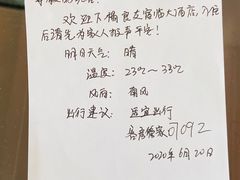 欢迎下榻良友宿临大酒店，入住
后请先为家人报声平安！
明日天气：晴
温度：23℃～33℃
风向：南风
出行建议：适宜出行
客房管家 01092
2020年6月20日